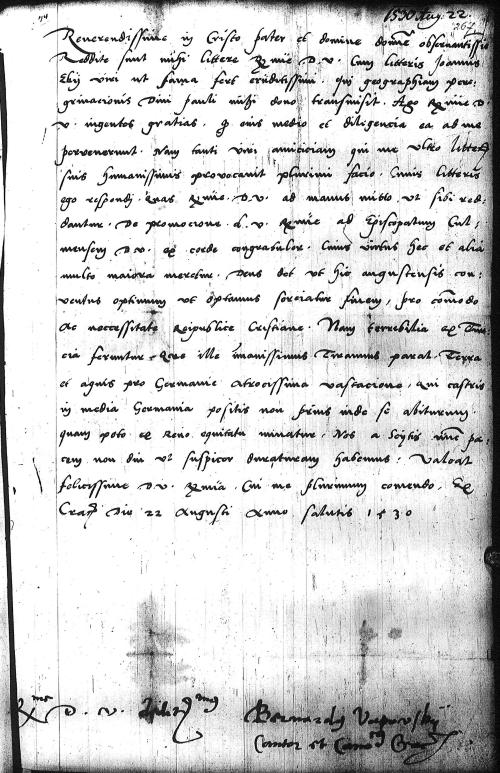 1530 Aug. 22.
267
Reverendissime in Cristo pater et domine domine observantissime
Reddite sunt mihi littere R.me D. V. Cum litteris Joannis
viri ut fama fert eruditissimi. Qui geographiam pere-
grinacionis Divi Pauli mihi dono transmisit. Ago R.me D.
V. ingentes gratias, q eius medio et diligencia ea ad me
pervenerunt. Nam tanti viri amiciciam qui me ultro litteris
suis humanissimis provocavit plurimi facio. Cuius litteris
ego respondi. quas R.me D. V. ad manus mitto ut sibi red-
dantur. De promocione d. v. R.me ad Episcopatum Cul-
mensem D. v. ex corde congratulor. Cuius virtus hec et alia
multo maiora meretur. Deus det ut hic augustensis con-
ventus optimum ut optamus sorciatur finem, pro comodo
Ac necessitate Reipublice Cristiane. Nam terribilia ex Tur-
cia feruntur, que ille immanissimus Tirannus parat. Terra
et aquis pro Germanie atrocissima vastacione, qui castris
in media Germania positis non prius inde se abiturum
quam poto ex Reno equitatu minatur. Nos a Scitis nunc pa-
cem non diu ut suspicor duraturam habemus. Valeat
felicissime D. V. R.ma Cui me plurimum comendo. Ex
Crac. Die 22 Augusti Anno salutis 1530
R.me D. V.
Bernardus Vapovsky
Cantor et Cano.s Crac.